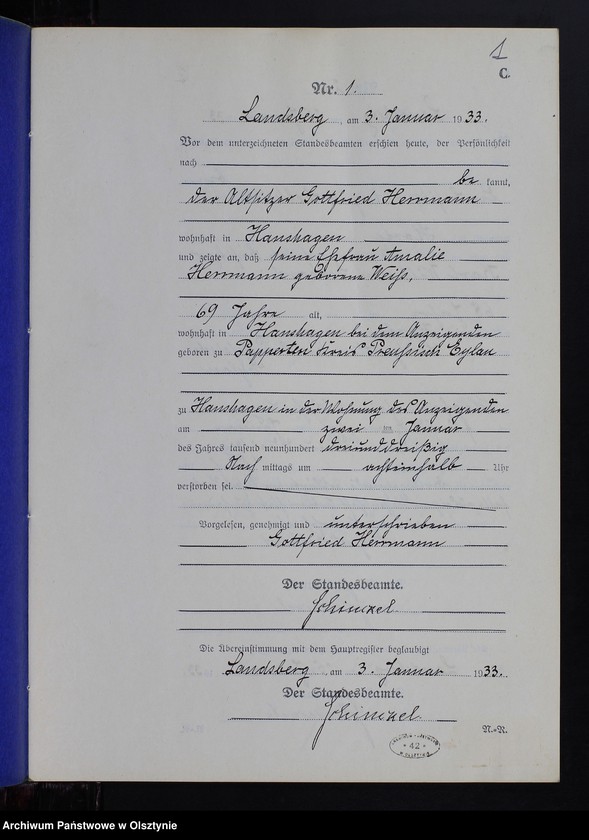 1
C.
Nr. 1.
Landsberg, am 3. Januar 1933.
Vor dem unterzeichneten Standesbeamten erschien heute, der Persönlichkeit
nach
be kannt,
der Altsitzer Gottfried Herrmann
wohnhaft in Hanshagen
und zeigte an, daß seine Ehefrau Amalie
Herrmann geborene Weiß,
69 Jahre alt,
wohnhaft in Hanshagen bei dem Anzeigenden
geboren zu Papperten Kreis Preußisch Eylau
zu Hanshagen in der Wohnung des Anzeigenden
am zwei ten Januar
des Jahres tausend neunhundert dreiunddreißig
Nach mittags um achteinhalb Uhr
verstorben sei.
Vorgelesen, genehmigt und unterschrieben
Gottfried Herrmann
Der Standesbeamte.
Schinckel
Die Übereinstimmung mit dem Hauptregister beglaubigt
Landsberg, am 3. Januar 1933.
Der Standesbeamte.
Schinckel
N.-N.
42
Archiwum Państwowe w Olsztynie